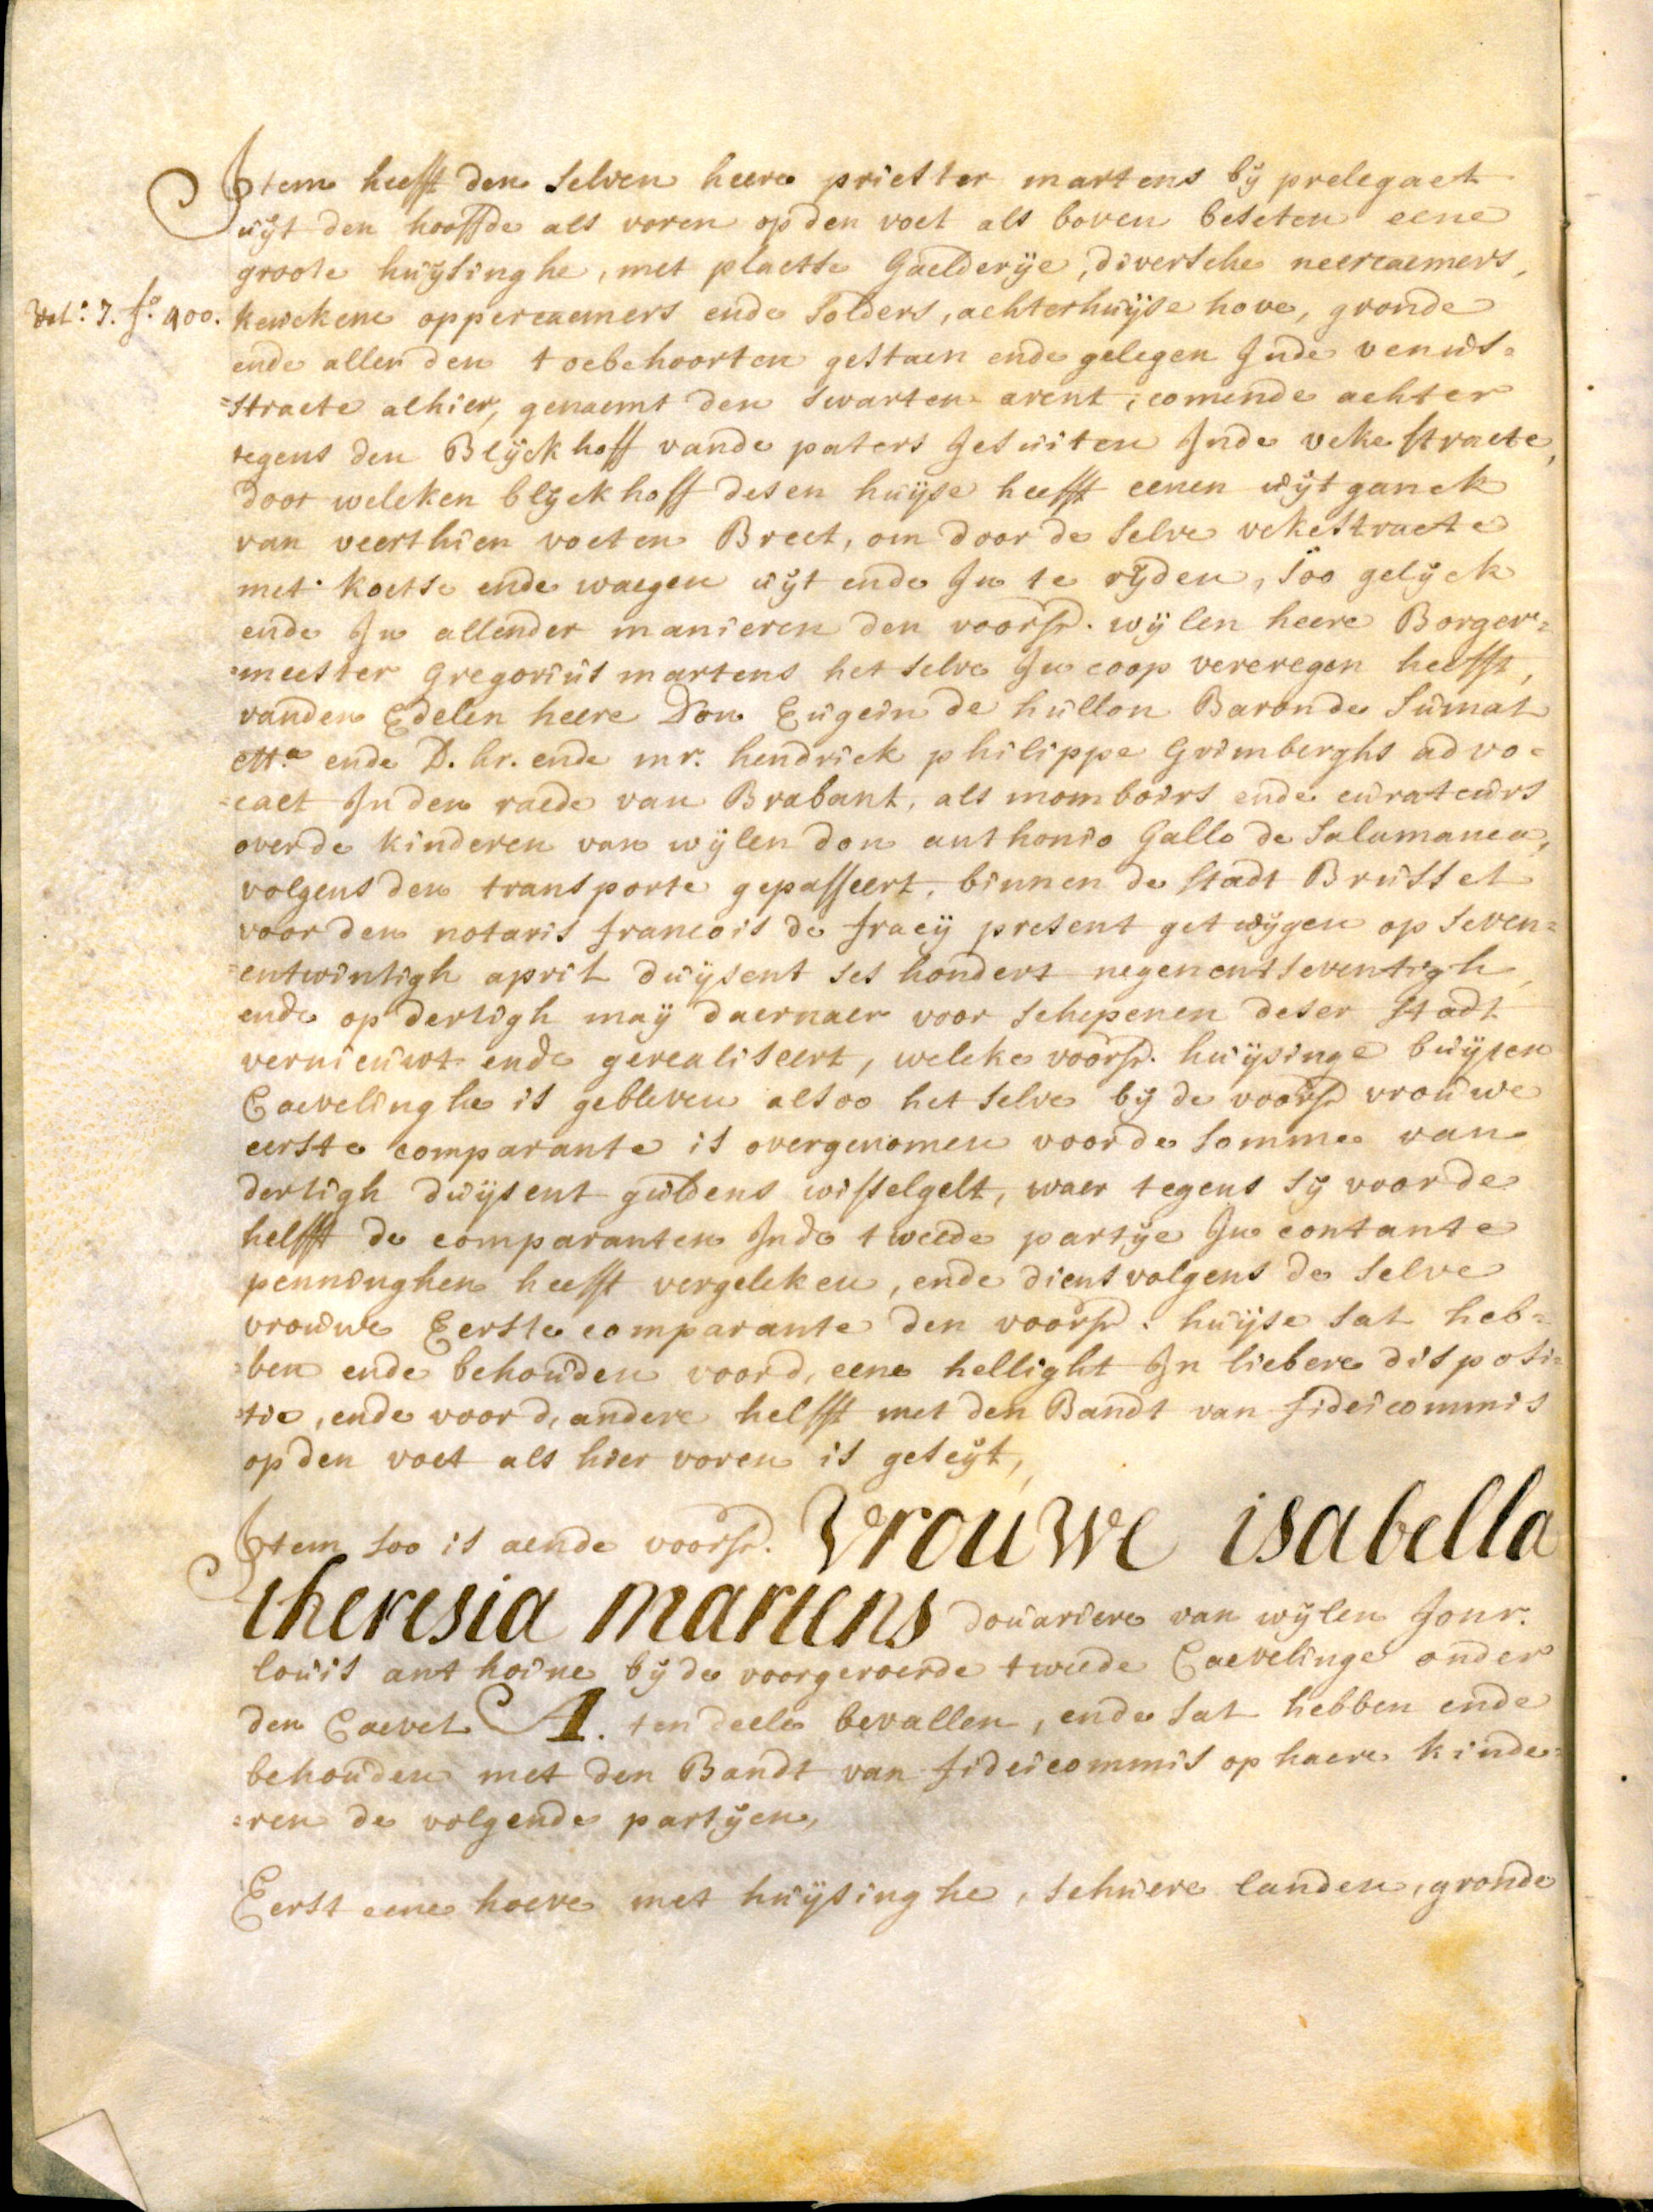 Item heefft den selven heere priester martens bij prelegaet
uijt den hooffde als voren opden voet als boven beseten eene
groote huijsinghe, met plaetse Gaelderije, diversche neercaemers,
vol: 7. fo. 400. keuckene oppercaemers ende solders, achterhuijse hove, gronde
ende allen den toebehoorten gestaen ende gelegen Inde venus=
=straete alhier, genaemt den swarten arent, comende achter
tegens den Blijckhoff vande paters Jesuiten Inde vekestraete,
door welcken blijckhoff desen huijse heefft eenen uijtganck
van veerthien voeten Breet, om door de selve vekestraete
met koetse ende waegen uijt ende In te rijden, soo gelijck
ende In allender manieren den voorsr. wijlen heere Borger=
=meester Gregorius martens het selve In coop vercregen heefft,
vanden Edelen heere Don Eugein de hullon Baron de Sumal
etta. ende D. hr. ende mr. hendrick philippe Grimberghs advo=
=caet Inden raede van Brabant, als momboirs ende curateurs
overde kinderen van wijlen don anthonio Gallo de Salamanca,
volgens den transporte gepasseert, binnen de stadt Brussel
voor den notaris francois de fraeij present getuijgen op seven=
=entwintigh april duijsent ses hondert negenentseventigh,
ende op dertigh maij daernaer voor schepenen deser stadt
vernieuwt ende gerealiseert, welcke voorsr. huijsinge buijten
Caevelinghe is gebleven alsoo het selve bij de voorsr vrouwe
eerste comparante is overgenomen voor de somme van
dertigh duijsent guldens wisselgelt, waer tegens sij voor de
helfft de comparanten Inde tweede partije In contante
penninghen heefft vergeleken, ende dienvolgens de selve
vrouwe Eerste comparante den voorsr. huijse sal heb=
=ben ende behouden voor d, eene hellight In liebere disposi=
=tie, ende voor d, andere helfft met den Bandt van fideicommis
opden voet als hier voren is geseijt,
Item soo is aende voorsr. Vrouwe isabella
theresia martens douariere van wijlen Jonr.
louis anthoine bij de voorgeroerde tweede Caevelinge onder
den Caevel A. ten deele bevallen, ende sal hebben ende
behouden met den Bandt van fideicommis op haere kinde=
=ren de volgende partijen,
Eerst eene hoeve met huijsinghe, schuere landen, gronde